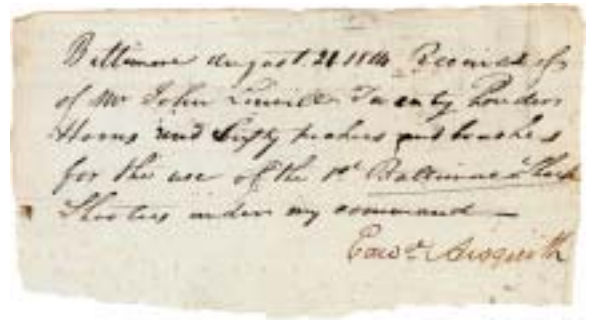 Baltimore August 21 1814. Received of
of Mr John Twenty Powder
Horns and Fifty prickers and brushes
for the use of the 1st Baltimore Sharp
Shooters under my command
Edwd Aisquith